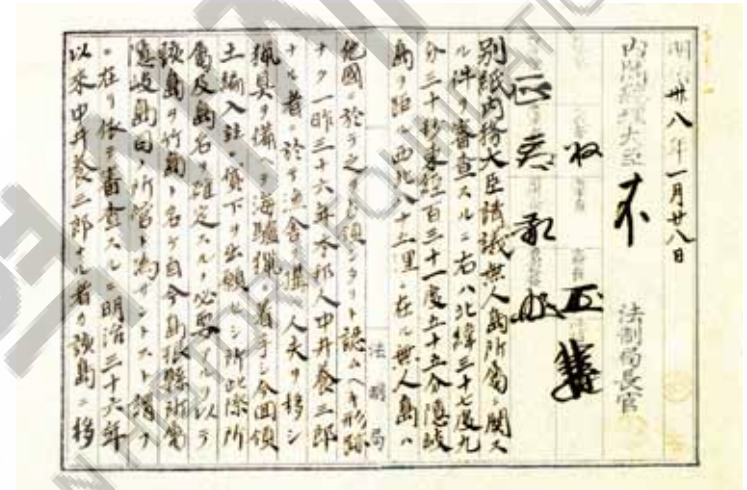 明治卅八年一月廿八日
内閣総理大臣
法制局長官
別紙内務大臣請議無人島所属ニ関ス
ル件ヲ審査スルニ右ハ北緯三十七度九
分三十秒東経百三十一度五十五分隠岐
島ヲ距ル西北八十五里ニ在ル無人島ハ
他國ニ於テ之ヲ占領シタリト認ムヘキ形跡
ナク一昨三十六年本邦人中井養三郎
ナル者ニ於テ漁舎ヲ構ヘ人夫ヲ移シ
猟具ヲ備ヘテ海驢猟ニ着手シ今回領
土編入並ニ貸下ヲ出願セシ所此際所
属及島名ヲ確定スルノ必要アルヲ以テ
該島ヲ竹島ト名ケ自今島根縣所属
隠岐島司ノ所管ト為サントスト謂フ
ニ在リ依テ審査スルニ明治三十六年
以来中井養三郎ナル者カ該島ニ移
法制局
HISTORY FOUNDATION